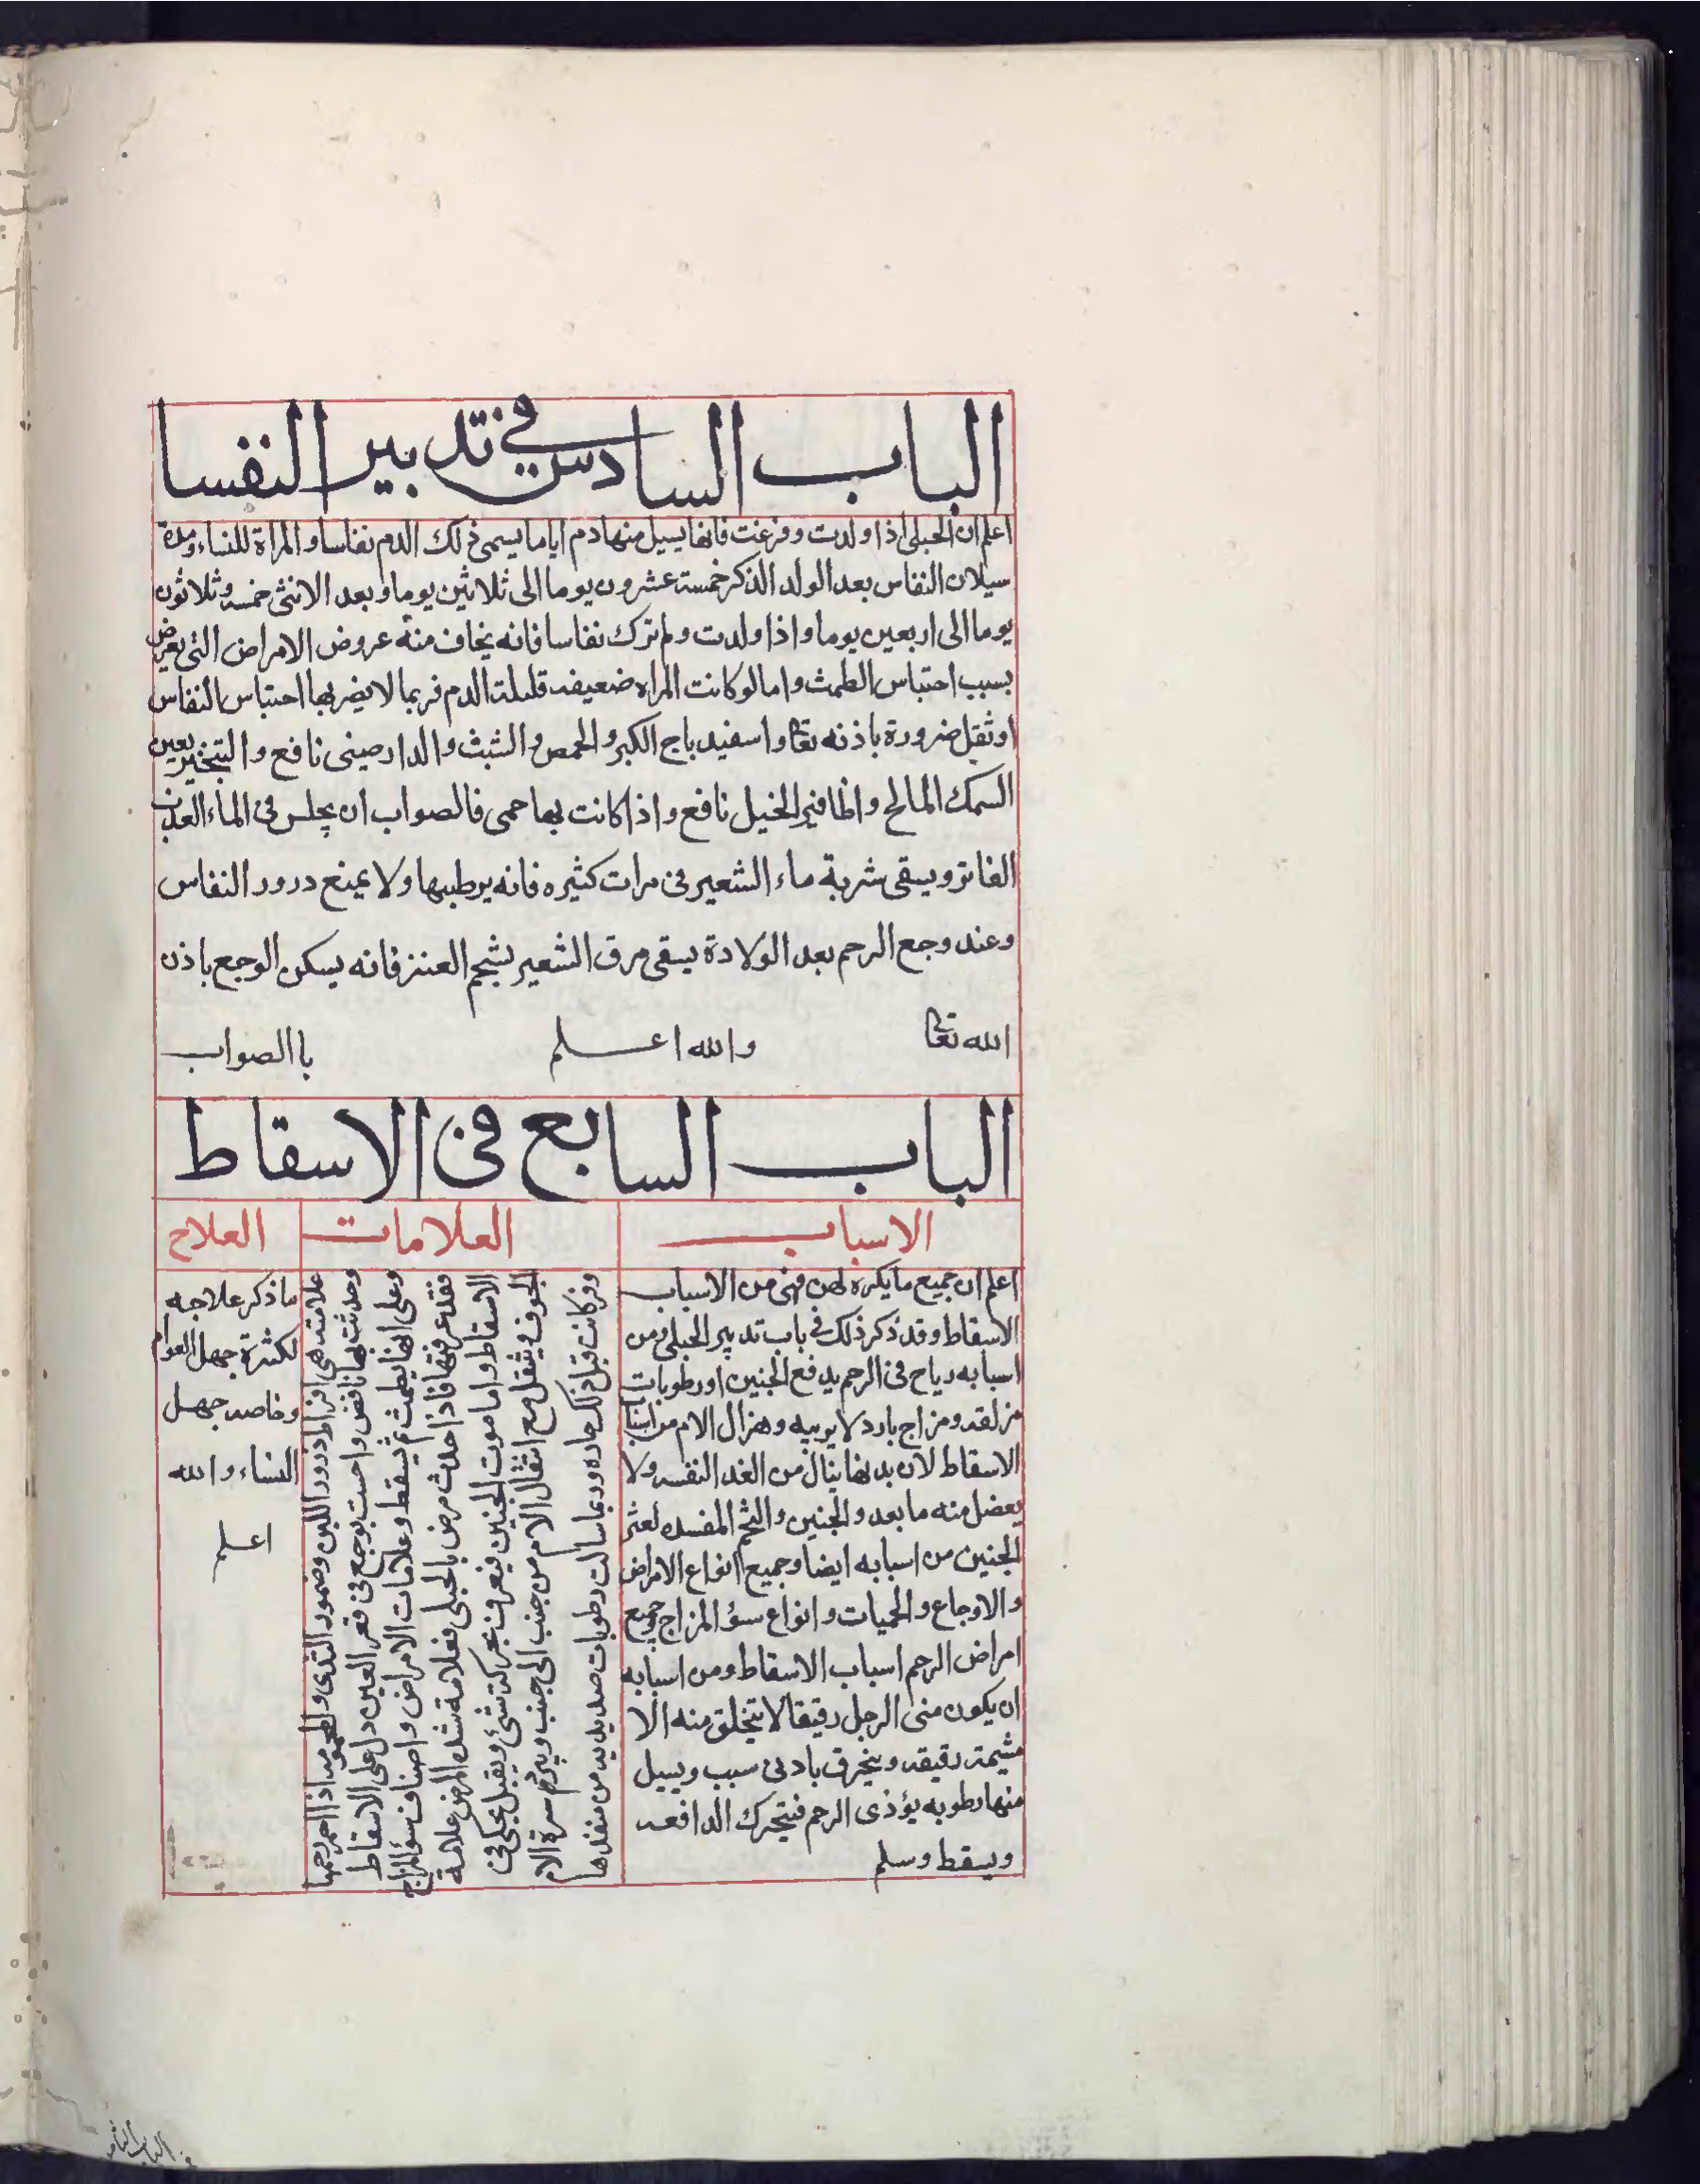 الباب السادس في تدبير النفسا
اعلم ان الحبلى اذا ولدت وفرغت فانها يسيل منها دم اياما يسمى ذلك الدم نفاسا والمراة للنساء ومدة
سيلان النفاس بعد الولد الذكر خمسة عشرون يوما الى ثلاثين يوما وبعد الانثى خمسه وثلاثون
يوما الى اربعين يوما واذا ولدت ولم ترك نفاسا فانه يخاف منه عروض الامراض التى يعرض
بسبب احتباس الطمث واما لو كانت المراه ضعيفه قليلة الدم فربما لا يضر بها احتباس النفاس
او ثقل ضرورة باذنه تعا واسفيد باج الكبر والحمص والشبث والدارصينى نافع والتبخير بعين
السمك المالح واظافير الخيل نافع واذا كانت بها حمى فالصواب ان يجلس فى الماء العذب
الفاتر ويسقى شربة ماء الشعير فى مرات كثيره فانه يرطبها ولا يمنع درور النفاس
وعند وجع الرحم بعد الولادة يسقى مرق الشعير بشحم العنز فانه يسكن الوجع باذن
الله تعا والله اعلم باالصواب
الباب السابع فى الاسقاط
الاسباب العلامات العلاج
اعلم ان جميع ما يكره لهن فهى من الاسباب
الاسقاط وقد ذكر ذلك فى باب تدبير الحبلى ومن
اسبابه رياح فى الرحم يدفع الجنين او رطوبات
مزلقه ومزاج بارد لا يربيه وهزال الام من اسباب
الاسقاط لان بدنها ينال من الغدا النفسه ولا
يعضل منه ما بعد والجنين والتخم المفسده لعثر
الجنين من اسبابه ايضا وجميع انواع الامراض
والاوجاع والحميات وانواع سؤ المزاج وجميع
امراض الرحم اسباب الاسقاط ومن اسبابه
ان يكون منى الرجل رقيقا لا يتخلق منه الا
مشيمة رقيقه وينخرق بادنى سبب ويسيل
منها رطوبه يؤذى الرحم فيتحرك الدافعه
ويسقط وسلم
علامته هى افراط درور اللبن وضمور الثدى والحمود اذا احمر رحمها
وحدثت بها نافض واحست بوجع فى قعر العين دل على الاسقاط
وعلى انها يطمث ثم يسقط وعلامات الامراض واصناف سؤ المزاج
فقد عرفتها فاذا حدث مرض بالحبلى فعلامة شده المرض علامة
الاسقاط واما موت الجنين فيعرف بحركته شئ ويقبل عجل فى
الجوف ويثقل مع انتقال الام من جنب الى جنب ويبرد سرة الام
وقد كانت قبل ذلك حاره وربما سالت رطوبات صديديه من منفذها
ما ذكر علاجه
لكثرة جهل العوام
وخاصه جهل
النساء والله
اعلم
الباب الثامن